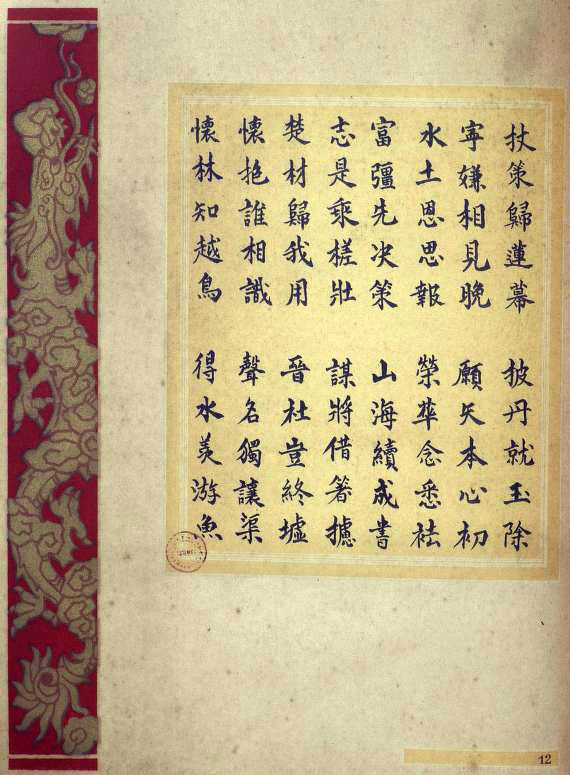 杖策歸蓮幕 披丹就玉除
寧嫌相見晚 願矢本心初
水土恩思報 榮華念悉祛
富彊先决策 山海續成書
志是乘槎壯 謀將借箸攄
楚材歸我用 晉社豈終墟
懷抱誰相識 聲名獨讓渠
懷林知越鳥 得水羡游魚
12